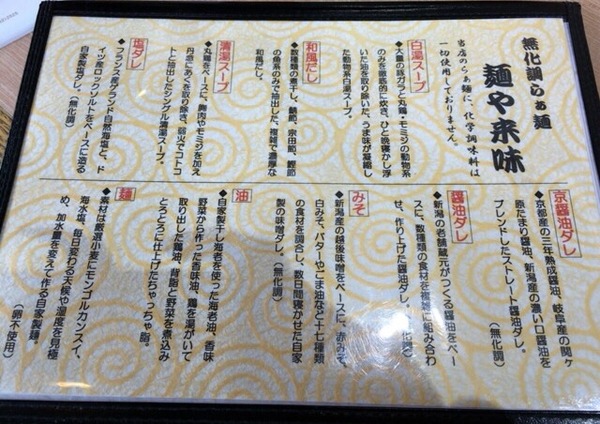 無化調らぁ麺
麺や来味
当店のらぁ麺に、化学調味料は
一切使用しておりません。
白湯スープ
◆大量の豚ガラと丸鶏・モミジの動物系
のみを徹底的に炊き、ひと晩寝かし浮
いた油を取り除いた、うま味が凝縮し
た動物系白湯スープ。
和風だし
◆数種類の煮干し、鯖節、宗田節、鰹節
の魚系のみで抽出した、複雑で濃厚な
和風だし。
清湯スープ
◆丸鶏をベースに、胸肉やモミジを加え
丹念にあくを取り除き、弱火でコトコ
トと抽出したシングル清湯スープ。
塩ダレ
◆フランス産ゲランド自然海塩と、ド
イツ産ロックソルトをベースに造る
自家製塩ダレ。(無化調)
京醤油ダレ
◆京都産の三年熟成醤油、岐阜産の関ヶ
原たまり醤油、新潟産の濃い口醤油を
ブレンドしたストレート醤油ダレ。
(無化調)
醤油ダレ
◆新潟の老舗蔵元がつくる醤油をベー
スに、数種類の食材を複雑に組み合わ
せ、作り上げた醤油ダレ。
みそ
◆新潟産の越後味噌をベースに、赤みそ、
白みそ、バターやごま油など十七種類
の食材を調合し、数日間寝かせた自家
製の味噌ダレ。(無化調)
油
◆自家製干し海老を使った海老油、香味
野菜から作った香味油、鶏を湯がいて
取り出した鶏油、背脂と野菜を煮込み
とろとろに仕上げたちゃっちゃ脂。
麺
◆素材は厳選小麦にモンゴルカンスイ、
海水塩。毎日変わる天候や湿度を見極
め、加水量を変えて作る自家製麺。
(卵不使用)